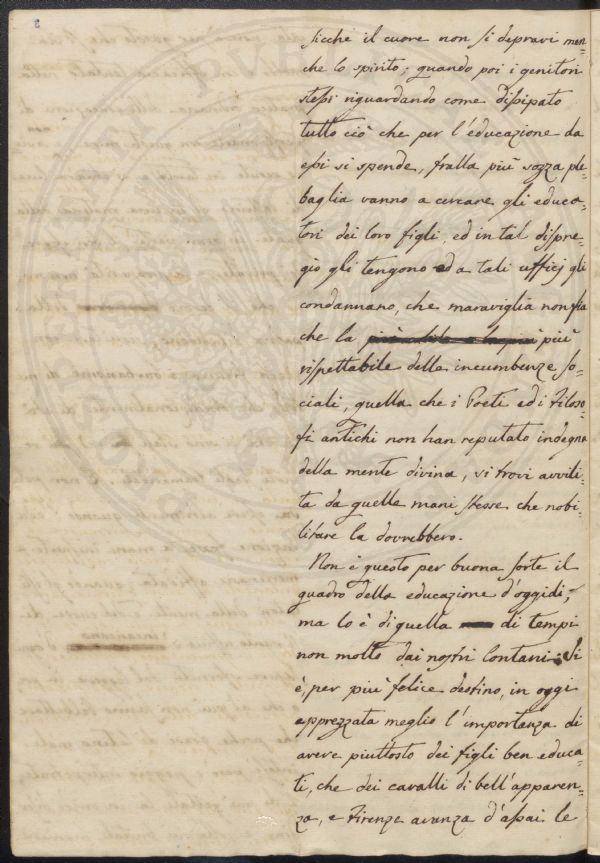 3
sicchè il cuore non si depravi men-
che lo spirito; quando poi i genitori
stessi riguardando come dissipato
tutto ciò che per l'educazione da
essi si spende, fralla più sozza ple-
baglia vanno a cercare gli educa-
tori dei loro figli, ed in tal dispre-
gio gli tengono ed a tali ufficj gli
condannano, che maraviglia non fia
che la più
rispettabile delle incumbenze so-
ciali, quella che i Poeti ed i Filoso-
fi antichi non han reputato indegna
della mente divina, si trovi avvili-
ta da quelle mani stesse che nobi-
litare la dovrebbero.
Non è questo per buona sorte il
quadro della educazione d'oggidì,
ma lo è di quella di tempi
non molto dai nostri lontani. Si
è, per più felice destino, in oggi
apprezzata meglio l'importanza di
avere piuttosto dei figli ben educa-
ti, che dei cavalli di bell'apparen-
za, e Firenze avanza d'assai le